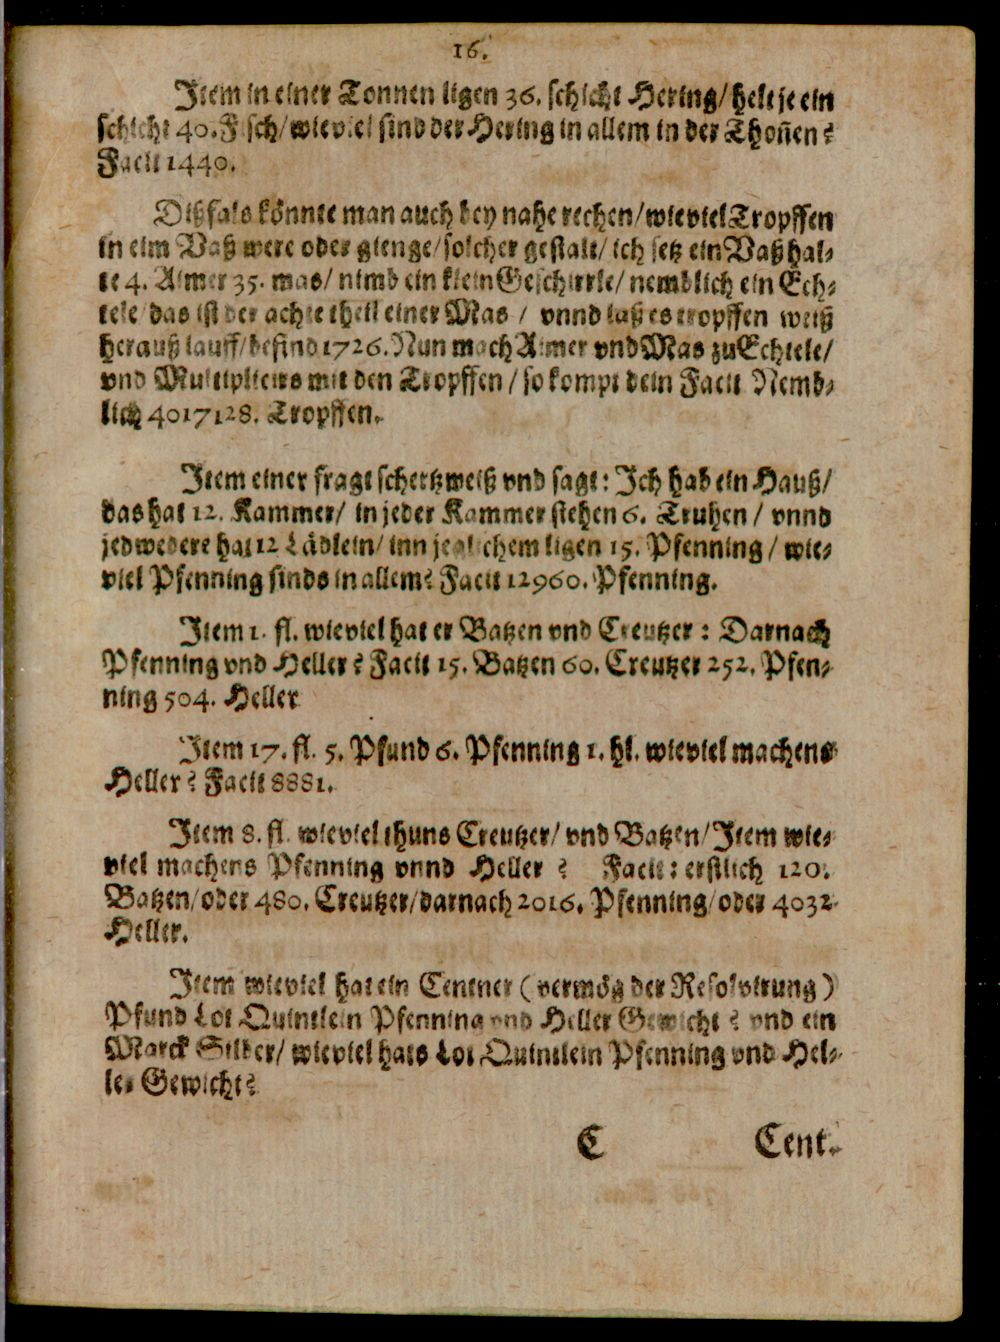 16.
Item in einer Tonnen ligen 36. schicht Hering/ helt je ein
schicht 40. Fisch/ wieviel sind der Hering in allem in der Thoñen?
Facit 1440.
Dißfals könnte man auch bey nahe rechen/ wieviel Tropffen
in eim Vaß were oder gienge/ solcher gestalt/ ich setz ein Vaß hal-
te 4. Aimer 35. mas/ nimb ein klein Geschirrle/ nemblich ein Ech-
tele das ist der achte theil einer Mas / vnnd laß es tropffen weiß
herauß lauff/ befind 1726. Nun mach Aimer vnd Mas zu Echtele/
vnd Multiplicirs mit den Tropffen / so kompt dein Facit Nemb-
lich 4017128. Tropffen.
Item einer fragt schertzweiß vnd sagt: Ich hab ein Hauß/
das hat 12. Kammer/ in jeder Kammer stehen 6. Truhen / vnnd
jedwedere hat 12 Lädlein/ inn jeglichem ligen 15. Pfenning / wie-
viel Pfenning sinds in allem? Facit 12960. Pfenning.
Item 1. fl. wieviel hat er Batzen vnd Creutzer : Darnach
Pfenning vnd Heller? Facit 15. Batzen 60. Creutzer 252. Pfen-
ning 504. Heller
Item 17. fl. 5. Pfund 6. Pfenning 1. hl. wieviel machens
Heller? Facit 8881.
Item 8. fl. wieviel thuns Creutzer/ vnd Batzen/ Item wie-
viel machens Pfenning vnnd Heller ? Facit: erstlich 120.
Batzen/ oder 480. Creutzer/ darnach 2016. Pfenning/ oder 4032
Heller.
Item wieviel hat ein Centner (vermög der Resolvirung)
Pfund Lot Quintlein Pfenning vnd Heller Gewicht? vnd ein
Marck Silber/ wieviel hats Lot Quintlein Pfenning vnd Hel-
ler Gewicht?
C Cent.